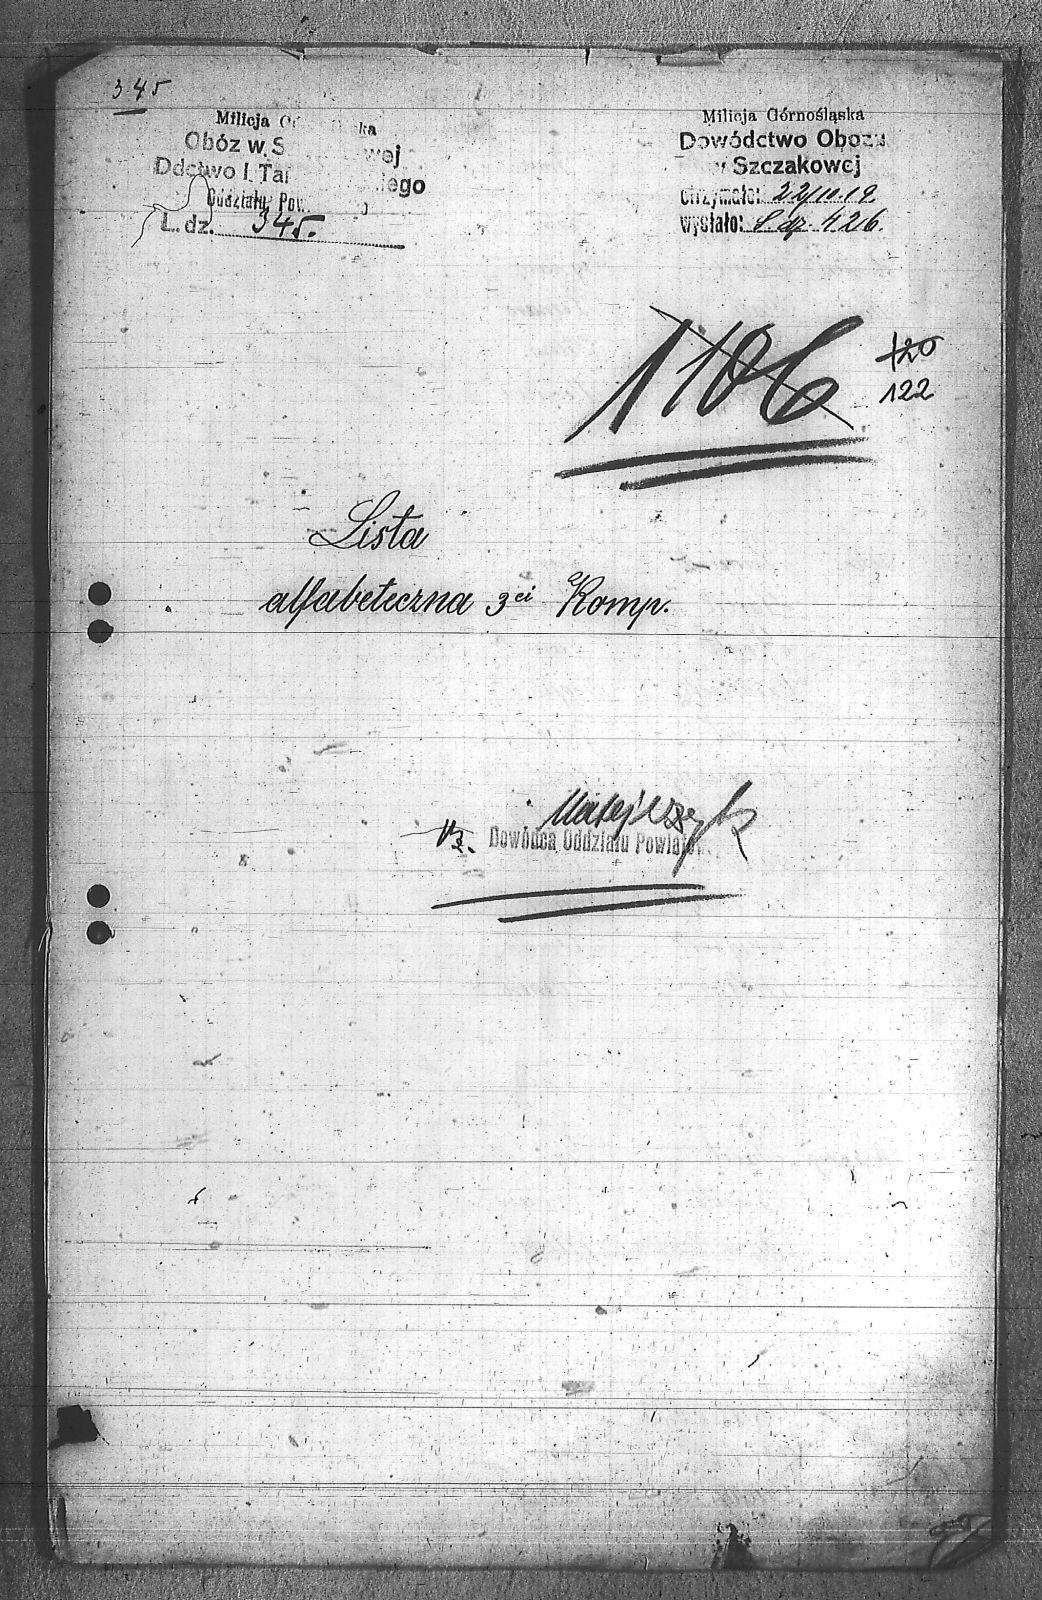 345
Milicja G ka
Obóz w S wej
Ddctwo I. Tar iego
Oddziału Pow.
L. dz. 345.
Milicja Górnośląska
Dowództwo Obozu
w Szczakowej
otrzymało: 22/10.19.
wysłało: L. dz. 426.
1106
120
122
Lista
alfabeteczna 3ei Komp.
Matejczyk
Wz. Dowódca Oddziału Powiatow.